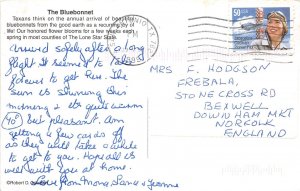 The Bluebonnet
Texans think on the annual arrival of
bluebonnets from the good earth as a recurring joy of
life! Our honored flower blooms for a few weeks each
spring in most counties of The Lone Star State.
Arrived safely after a long
flight it seemed to take
forever to get here. The
Sun is shining this
morning & it's quite warm
(40°) but pleasant. Am
getting a few cards off
as they will take a while
to get to you. Hope all is
well with you at home.
Love from Mona
& Jeanne
©Robert
50
MRS F. HODGSON
FREBALA,
STONECROSS RD
BEXWELL
DOWNHAM MKT
NORFOLK
ENGLAND